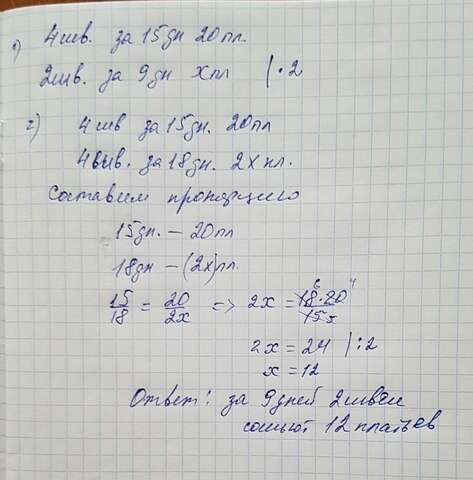 1) 4шв. за 15дн 20пл.
2шв. за 9дн хпл | · 2
2) 4шв за 15дн. 20пл
4шв. за 18дн. 2х пл.
Составим пропорцию
15дн. — 20пл
18дн — (2х)пл.
15/18 = 20/2x => 2x = 18·20/15
2x = 24 | :2
x = 12
Ответ: за 9дней 2швеи
сошьют 12платьев